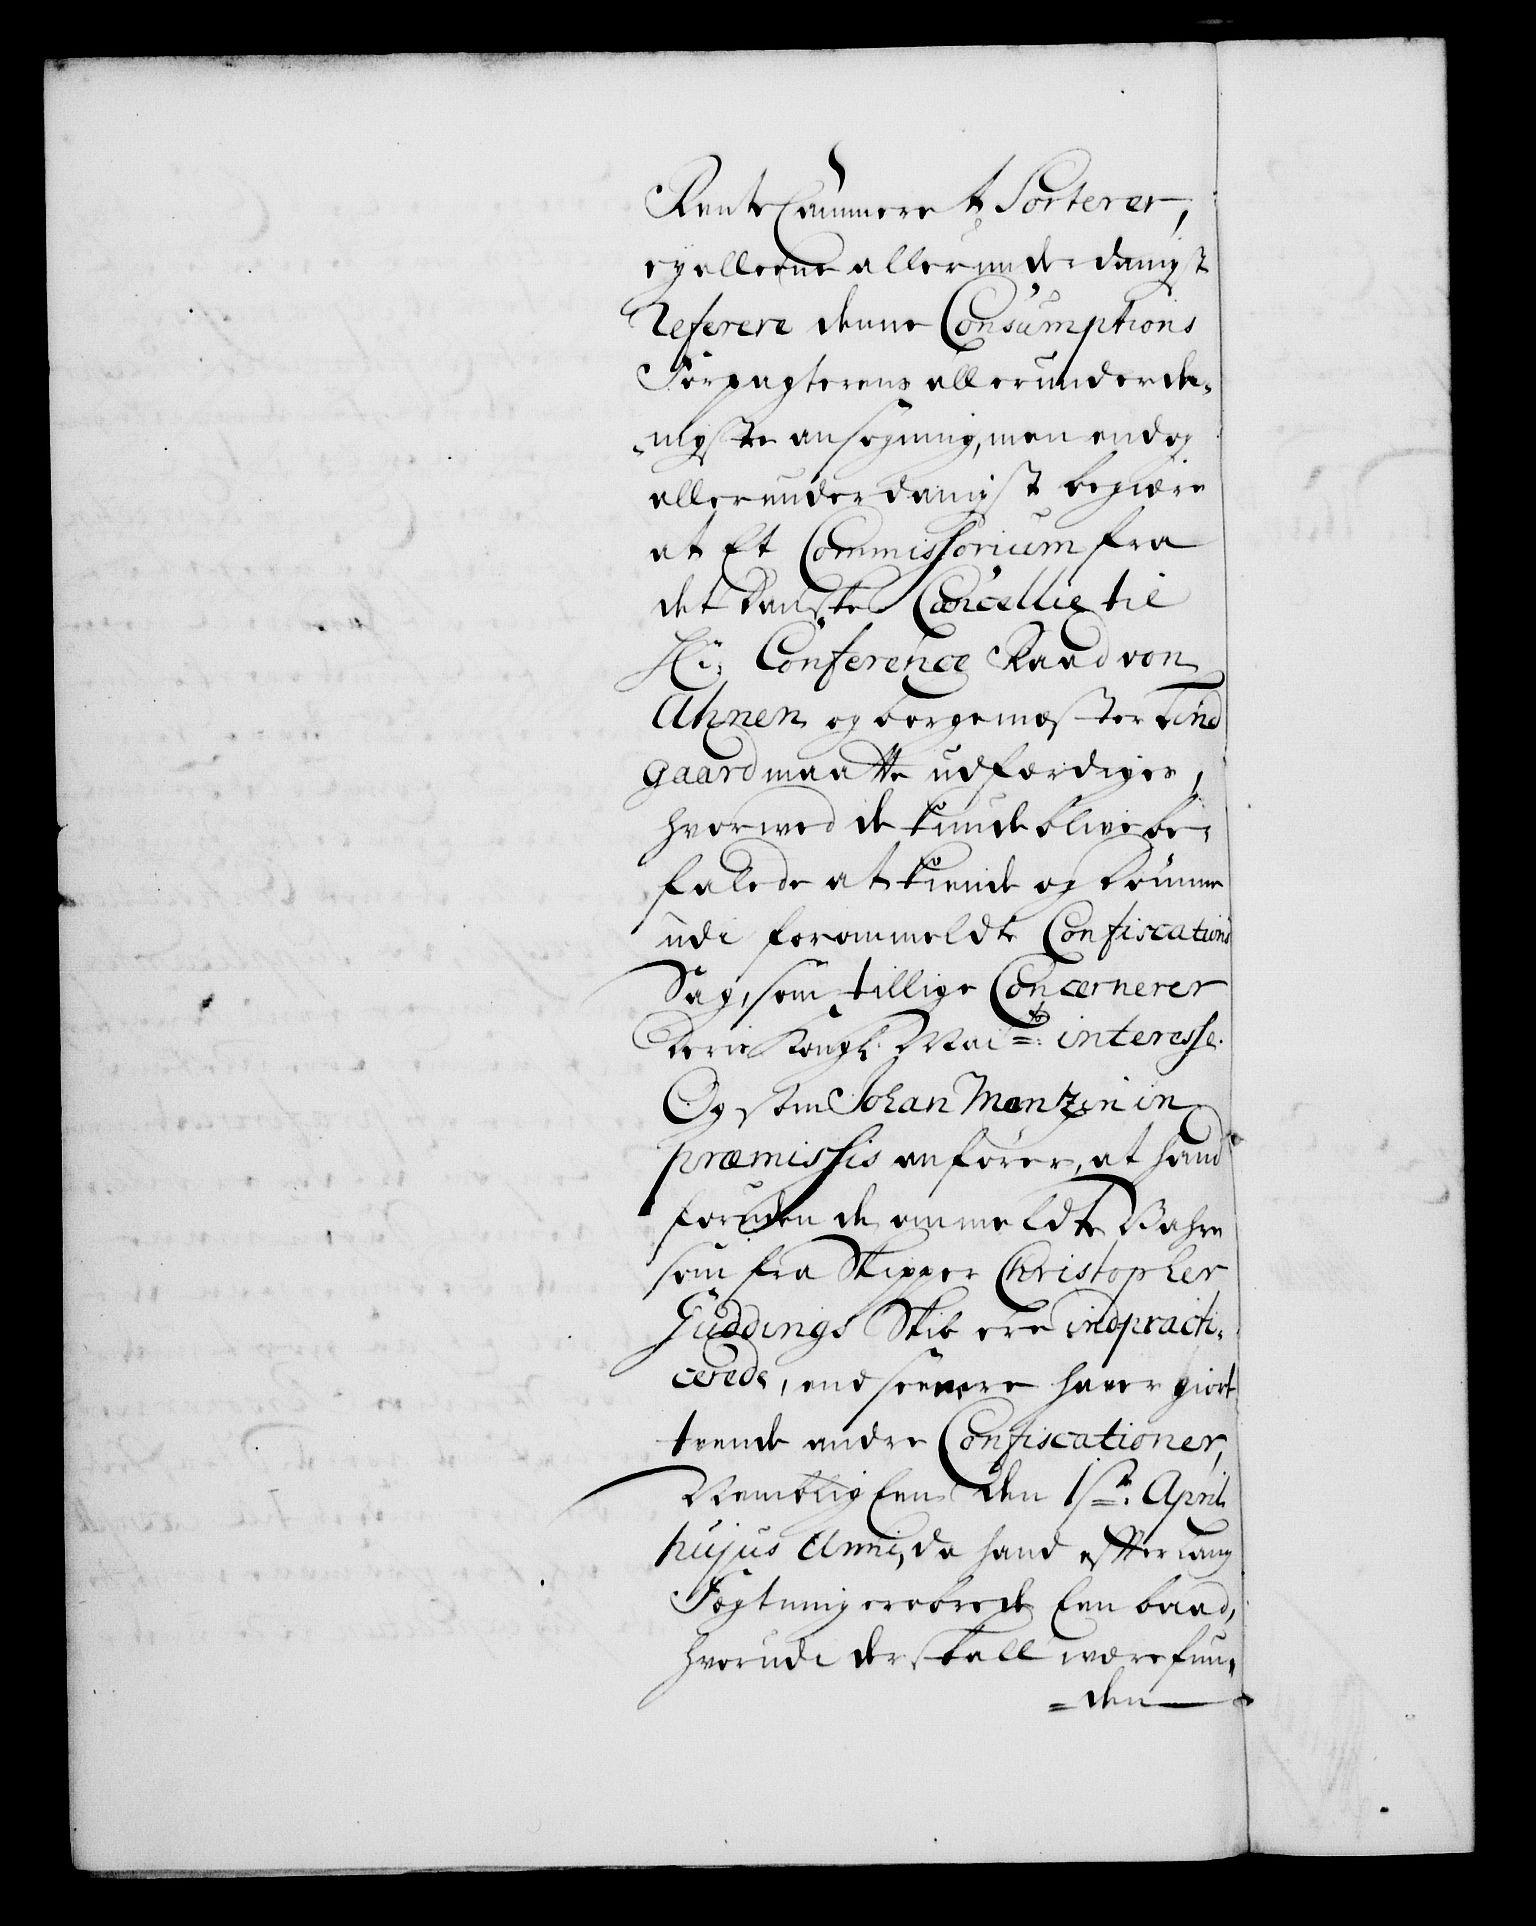 Rente Cammeret Sorterer,
ey alleene allerunderdanigst
Referere denne Consumptions
Forpagterens allerunderda-
nigste ansøgning, men endog
allerunderdanigst begiære
at Et Commissorium fra
det danske Cancellie til
Hr: Conference Raad von
Ahnen og borgemester Lind
gaard maatte udfærdiges,
hvorved de kunde blive be-
falede at kiende og dømme
udi forommeldte Confiscations
Sag, som tillige Concernerer
Deris Kongl: Mai=ts: interesse.
Og som Johan Mentzin in
præmissis anfører, at hand
foruden de ommeldte Vahre
som fra Skipper Christopher
Guddings Skib ere indpracti-
cerede, end seenere haver giort
trende andre Confiscationer,
Nemblig Een den 1ste: April
hujus Anni, da hand efter lang
Fægtning erobrede Een baad,
hvorudi der skall være fun-
=den